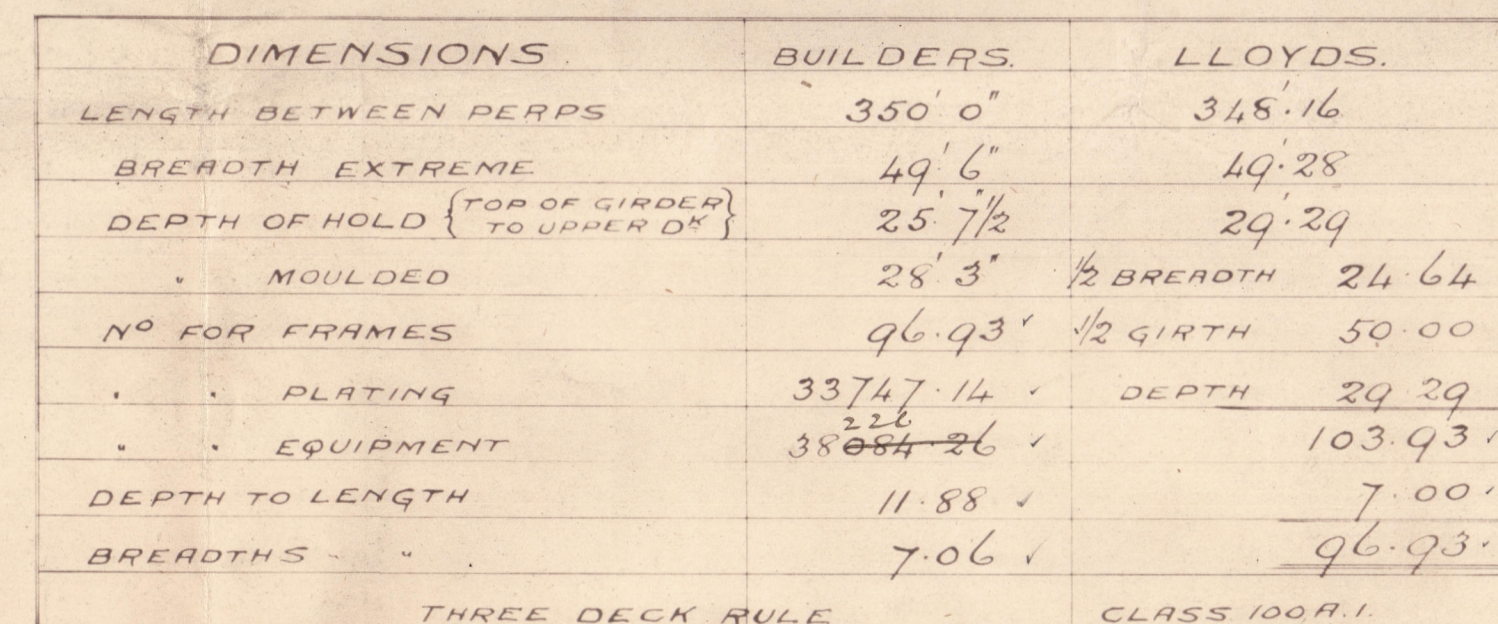 DIMENSIONS. BUILDERS. LLOYDS.
LENGTH BETWEEN PERPS 350' 0" 348'.16
BREADTH EXTREME 49' 6" 49'.28
DEPTH OF HOLD {TOP OF GIRDER TO UPPER DK} 25' 7"1/2 29'.29
" MOULDED 28' 3" 1/2 BREADTH 24.64
NO FOR FRAMES 96.93 ✓ 1/2 GIRTH 50.00
" " PLATING 33747.14 ✓ DEPTH 29.29
226
" " EQUIPMENT 38084.26 ✓ 103.93 ✓
DEPTH TO LENGTH 11.88 ✓ 7.00 ✓
BREADTHS " " 7.06 ✓ 96.93 ✓
THREE DECK RULE CLASS 100.A.1.